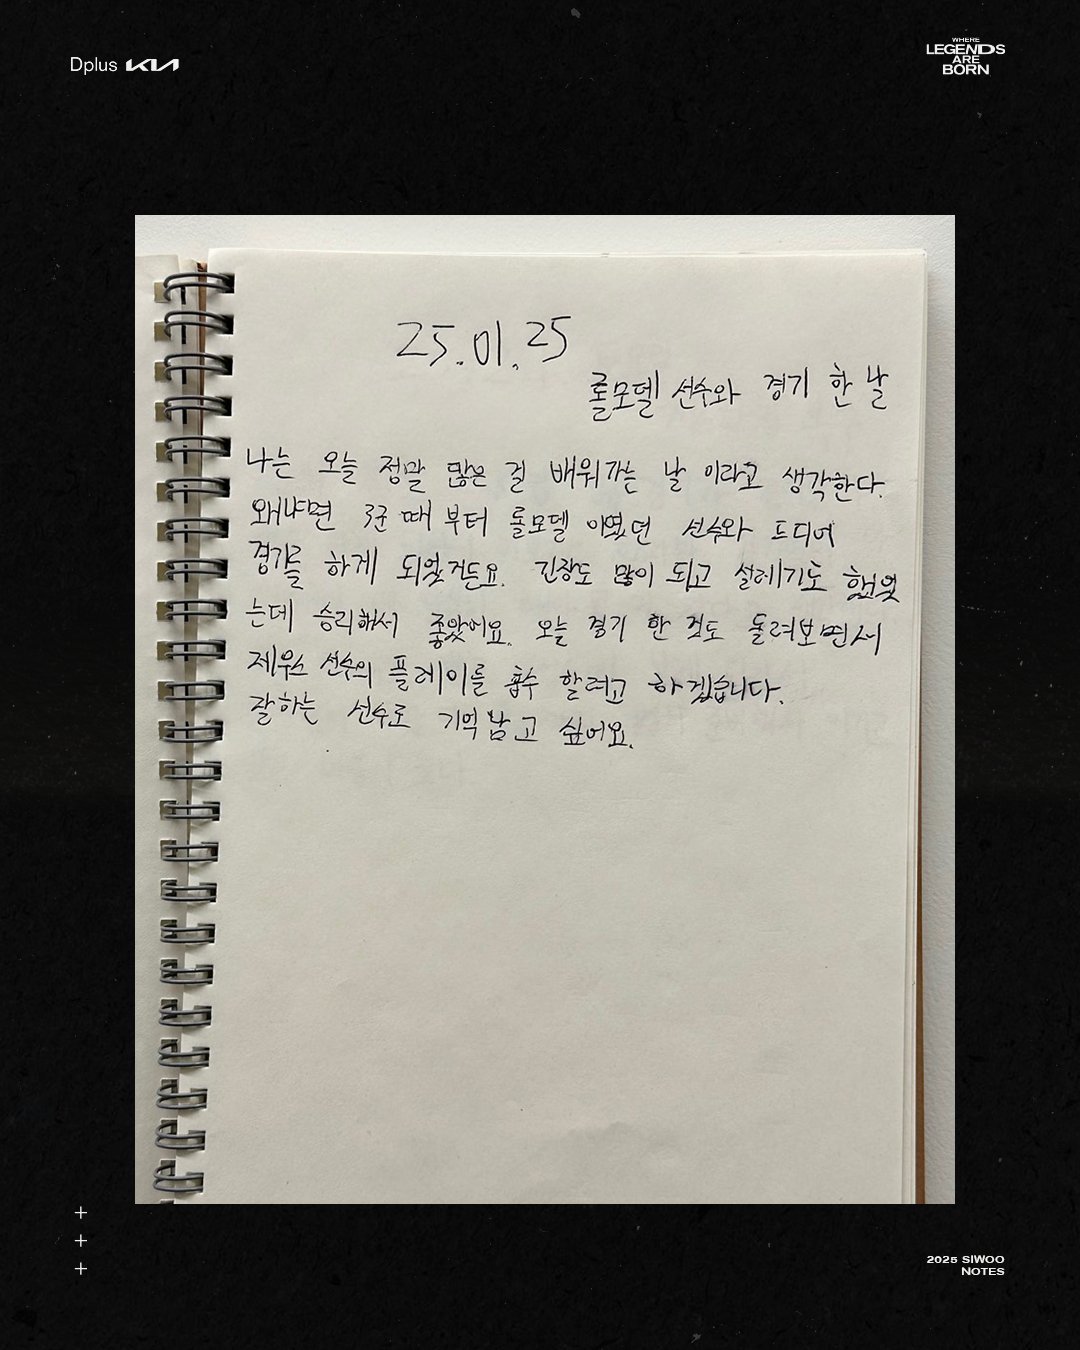 Dplus KIA
WHERE
LEGENDS
ARE
BORN
25.01.25
롤모델 선수와 경기 한 날
나는 오늘 정말 많은 걸 배워가는 날 이라고 생각한다.
왜냐면 3군 때 부터 롤모델 이였던 선수와 드디어
경기를 하게 되었거든요. 긴장도 많이 되고 설레기도 했었
는데 승리해서 좋았어요. 오늘 경기 한 것도 돌려보면서
제우스 선수의 플레이를 흡수 할려고 하겠습니다.
잘하는 선수로 기억남고 싶어요.
2025 SIWOO
NOTES